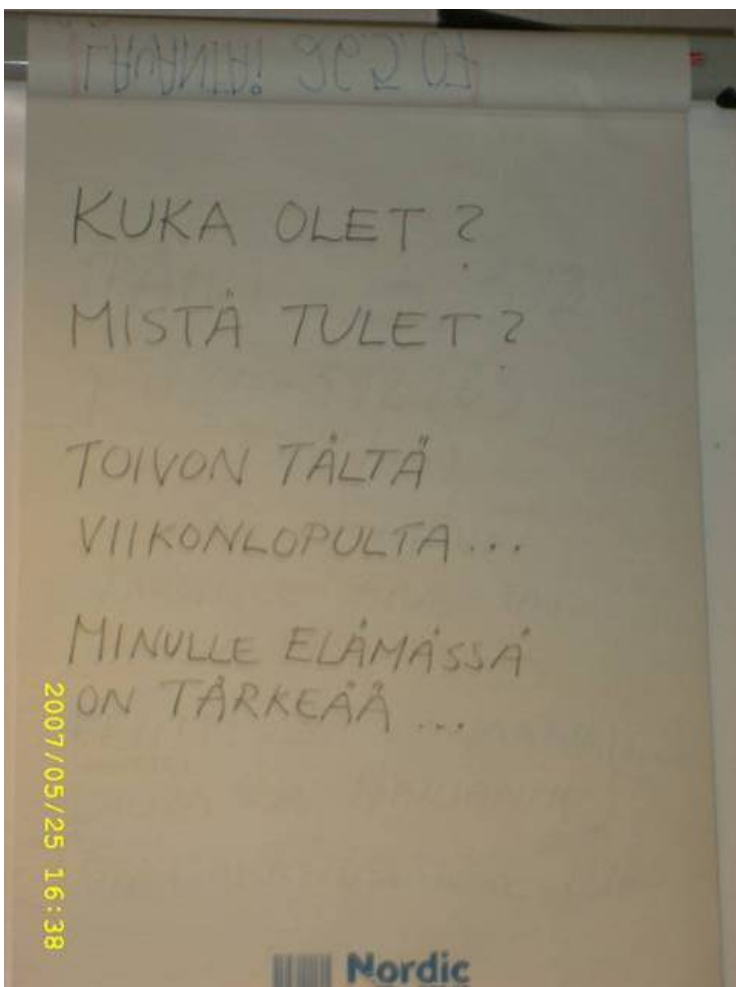 KUKA OLET?
MISTÄ TULET?
TOIVON TÄLTÄ
VIIKONLOPULTA...
MINULLE ELÄMÄSSÄ
ON TÄRKEÄÄ...
2007/05/25 16:38
Nordic